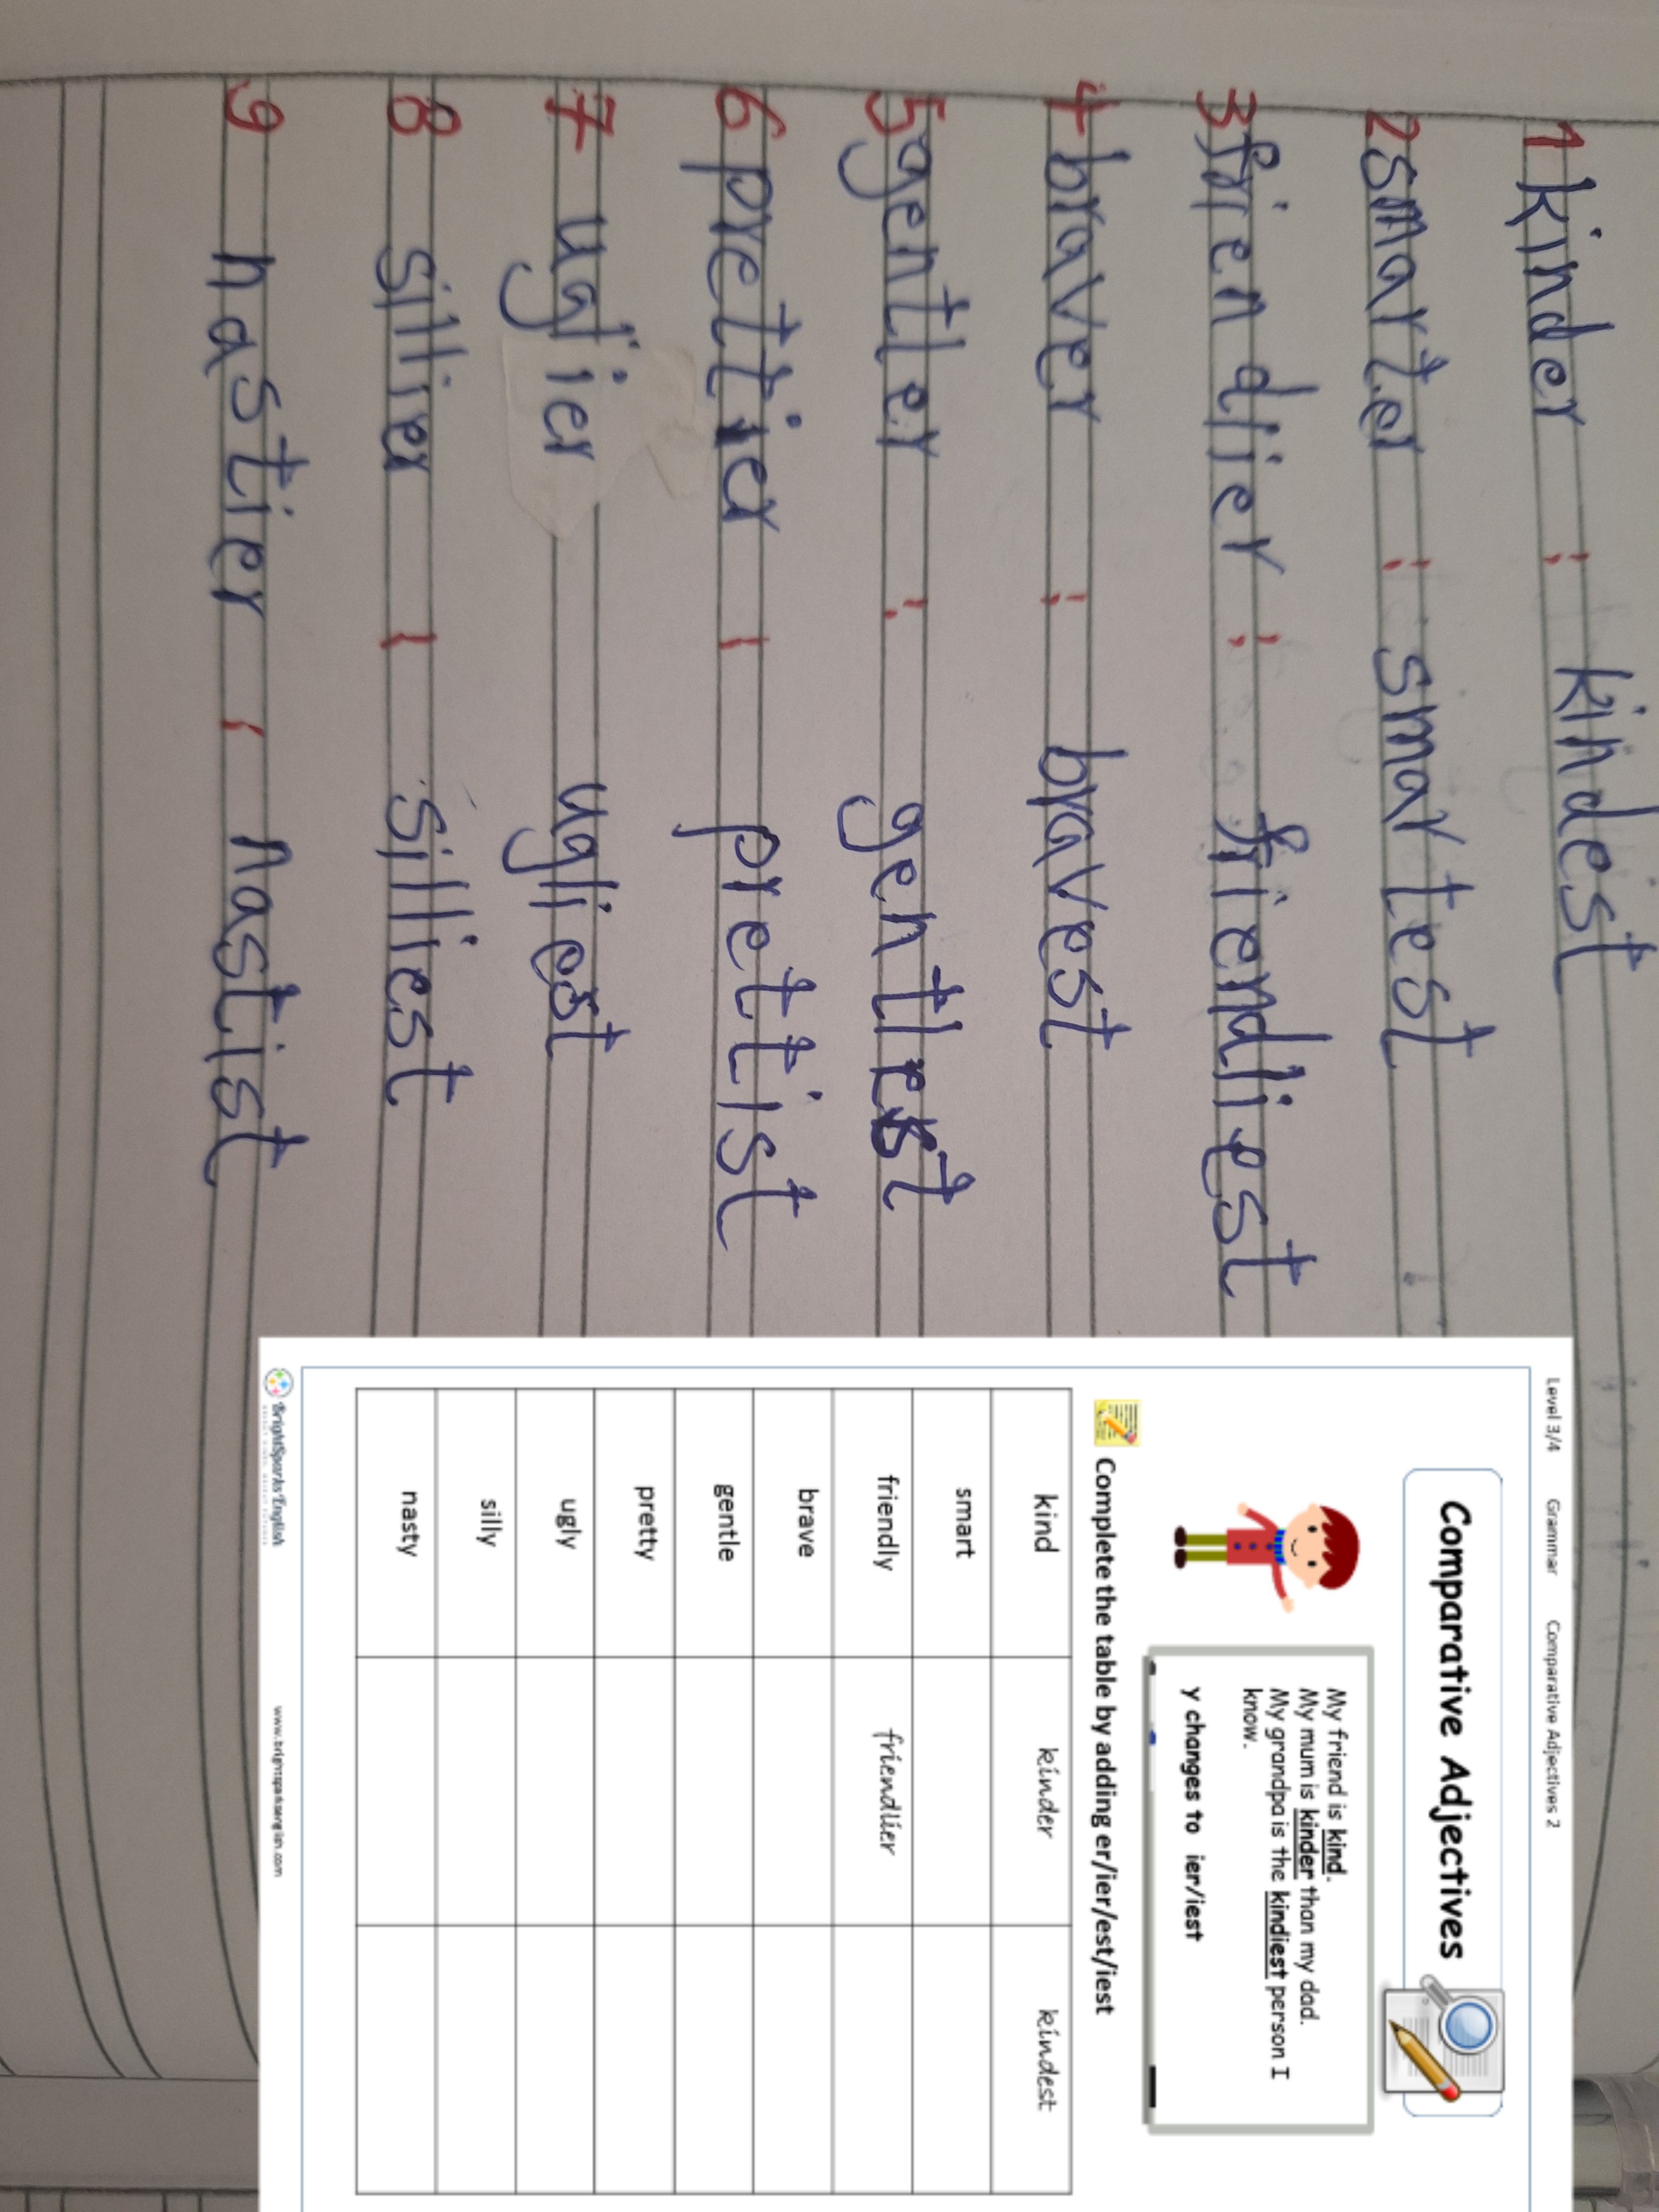 1 kinder ; kindest
2 smarter ; smartest
3 friendlier ; friendliest
4 braver ; bravest
5 gentler ; gentlest
6 prettier ; prettist
7 uglier ugliest
8 sillier ; silliest
9 nastier ; nastist
Level 3/4 Grammar Comparative Adjectives 2
Comparative Adjectives
My friend is kind.
My mum is kinder than my dad.
My grandpa is the kindiest person I
know.
y changes to ier/iest
Complete the table by adding er/ier/est/iest
kind kinder kindest
smart
friendly friendlier
brave
gentle
pretty
ugly
silly
nasty
BrightSparks English
www.brightsparksenglish.com